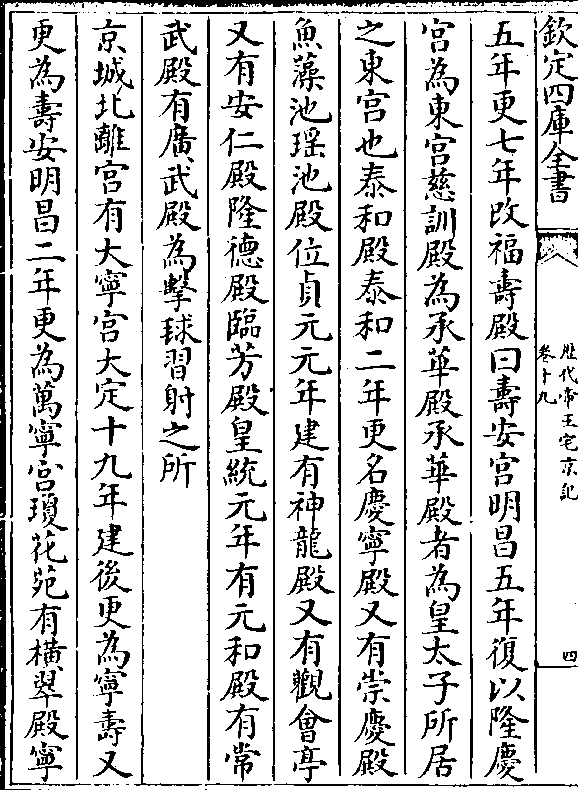 欽定四庫全書
歴代帝王宅京記
卷十九
四
五年更七年改福壽殿曰壽安宮明昌五年復以隆慶
宮為東宮慈訓殿為承華殿承華殿者為皇太子所居
之東宮也泰和殿泰和二年更名慶寧殿又有崇慶殿
魚藻池瑶池殿位貞元元年建有神龍殿又有觀會亭
又有安仁殿隆德殿臨芳殿皇統元年有元和殿有常
武殿有廣武殿為擊球習射之所
京城北離宮有大寧宮大定十九年建後更為寧壽又
更為壽安明昌二年更為萬寧宮瓊花苑有横翠殿寧